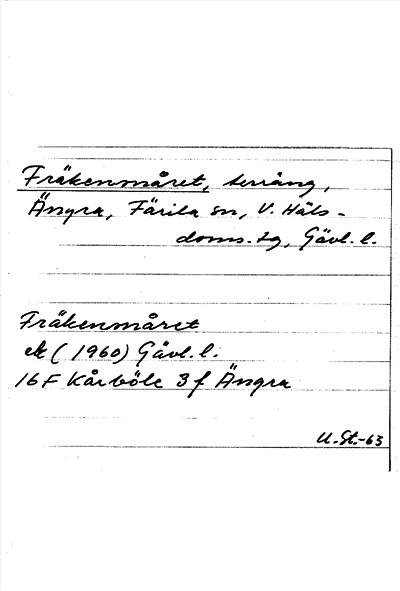 Fräkenmåret, terräng,
Ängra, Färila sn, V. Häls-
doms. tg, Gävl. l.
Fräkenmåret
ek (1960) Gävl. l.
16F Kårböle 3f Ängra
U. St.-63